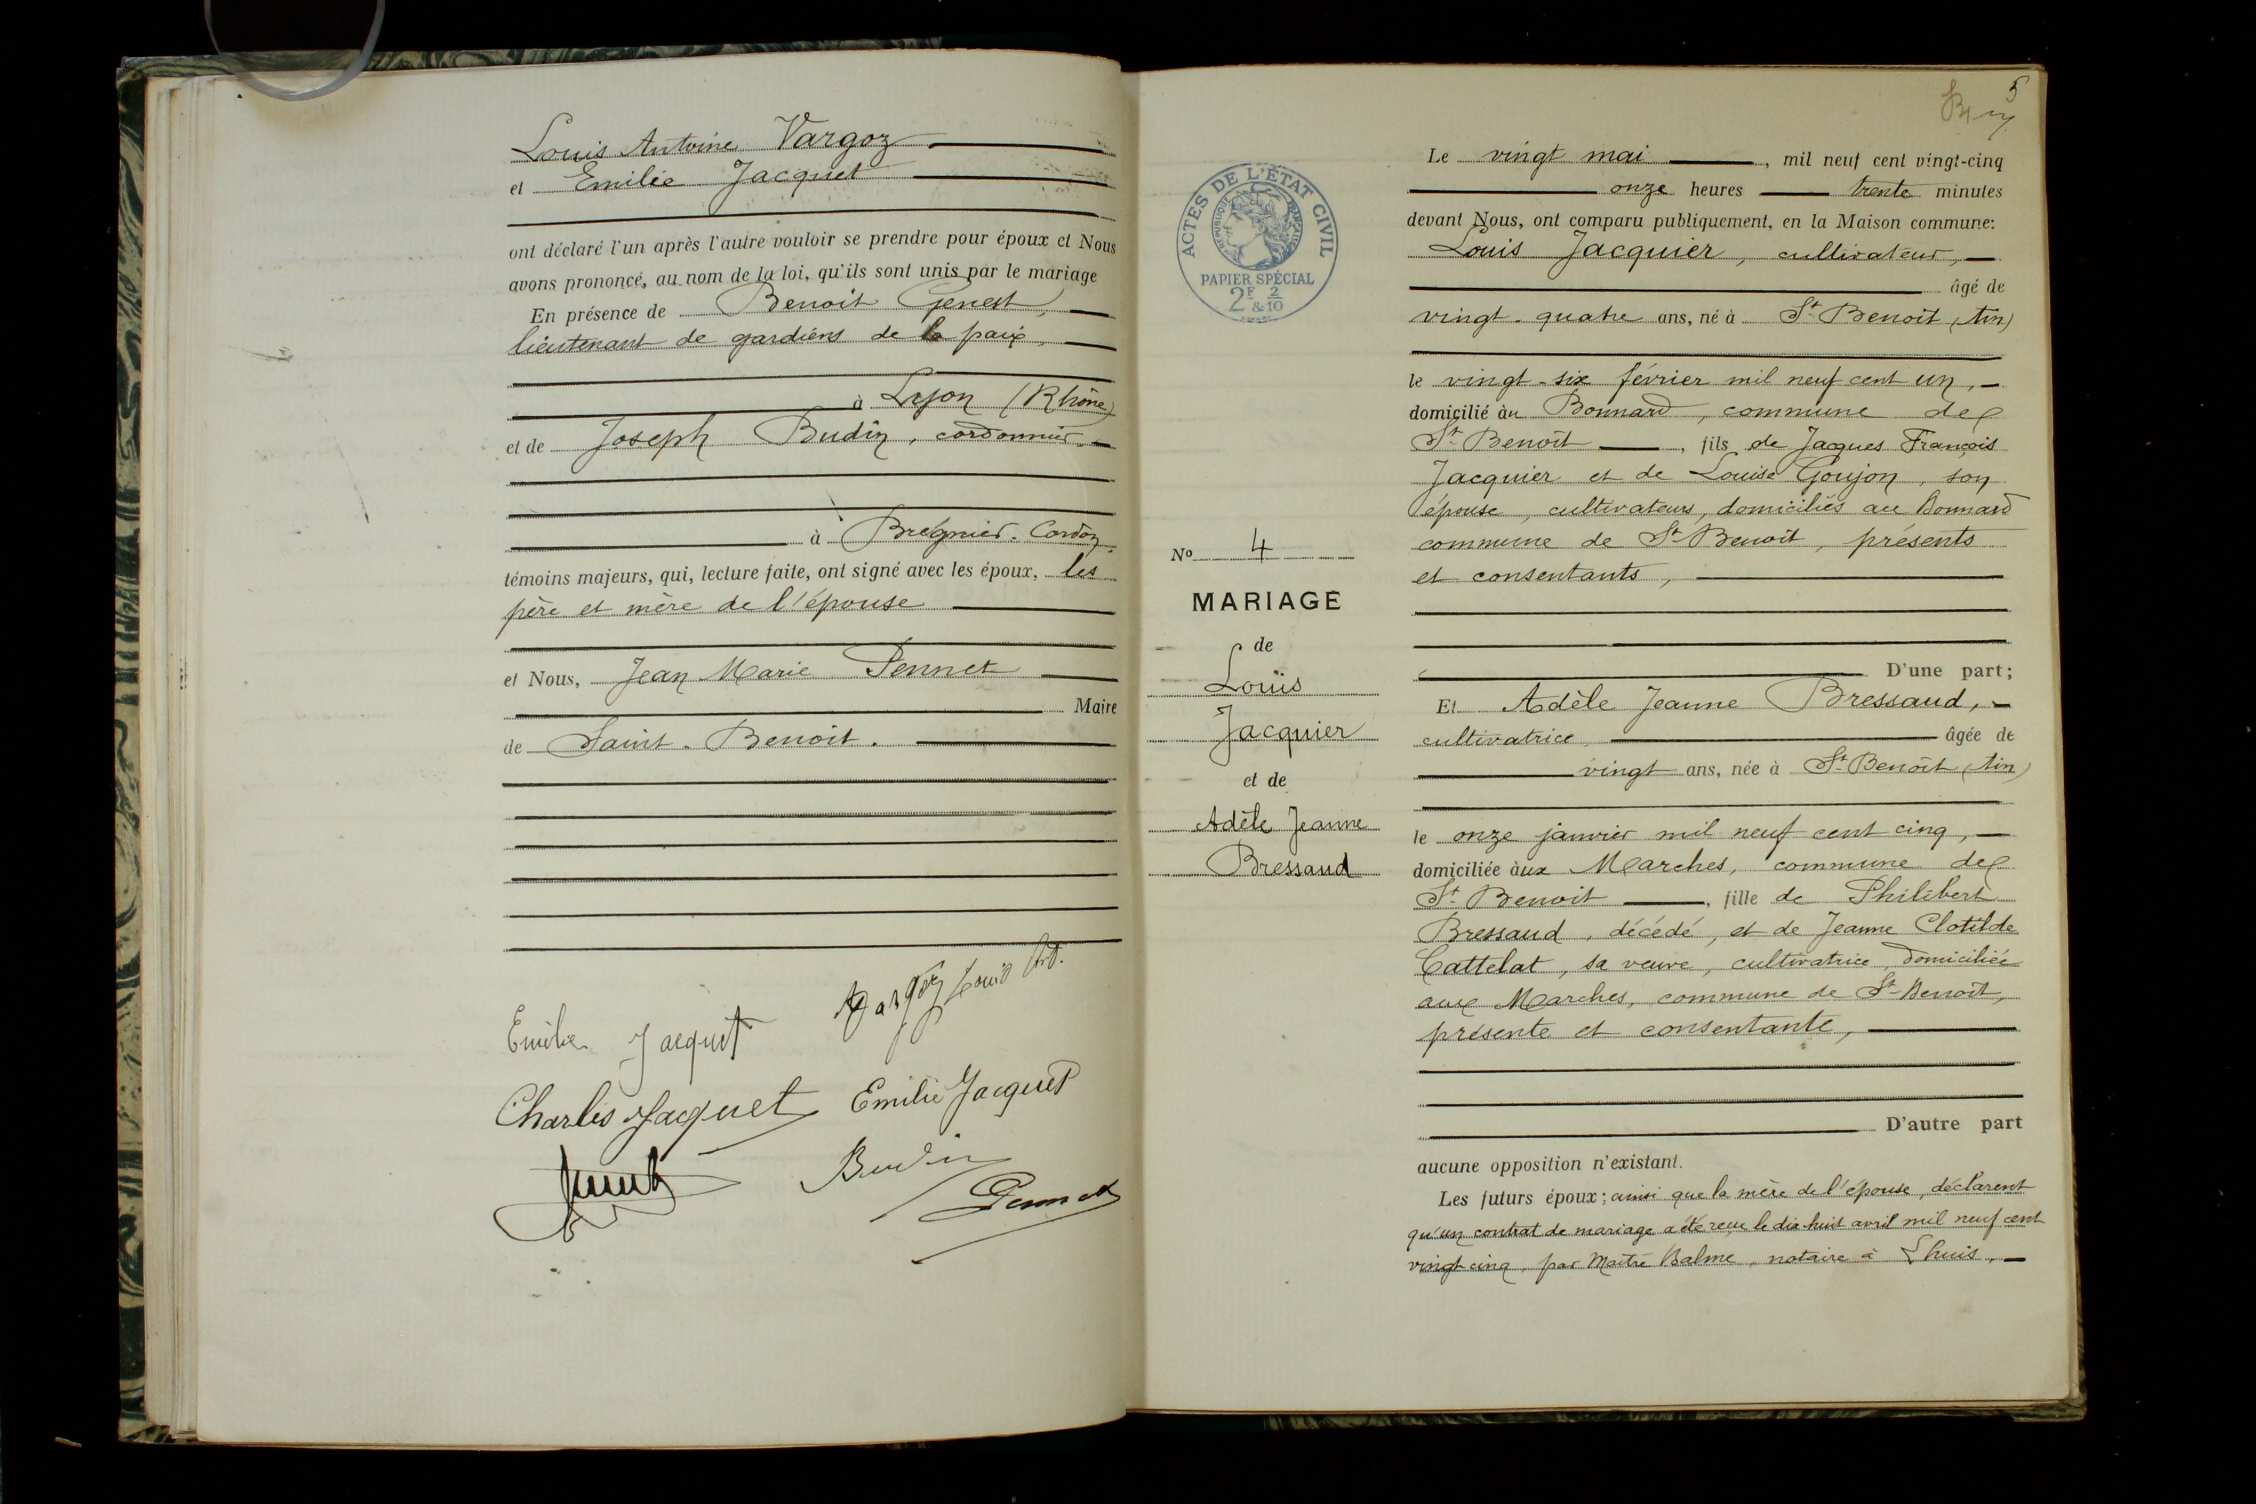 Louis Antoine Vargoz
et Emilie Jacquet
ont déclaré l'un après l'autre vouloir se prendre pour époux et Nous
avons prononcé, au nom de la loi, qu'ils sont unis par le mariage
En présence de Benoit Genest,
lieutenant de gardiens de la paix,
à Lyon (Rhône)
et de Joseph Budin, cordonnier
à Brégnier-Cordon,
témoins majeurs, qui, lecture faite, ont signé avec les époux, les
père et mère de l'épouse
et Nous, Jean Marie Pennet
Maire
de Saint-Benoit.
Vargoz Louis Ant.
Emilie Jacquet
Charles Jacquet Emilie Jacquet
Budin
Pennet
5
ACTES DE L'ÉTAT CIVIL
RÉPUBLIQUE FRANÇAISE
PAPIER SPÉCIAL
2F & 2/10
No 4
MARIAGE
de
Louis
Jacquier
et de
Adèle Jeanne
Bressaud
Le vingt mai, mil neuf cent vingt-cinq
onze heures trente minutes
devant Nous, ont comparu publiquement, en la Maison commune:
Louis Jacquier, cultivateur,
âgé de
vingt-quatre ans, né à St Benoît (Ain)
le vingt-six février mil neuf cent un,
domicilié àu Bonnard, commune de
St Benoît, fils de Jacques François
Jacquier et de Louise Goujon, son
épouse, cultivateurs, domiciliés au Bonnard
commune de St Benoît, présents
et consentants,
D'une part;
Et Adèle Jeanne Bressaud,
cultivatrice âgée de
vingt ans, née à St Benoît (Ain)
le onze janvier mil neuf cent cinq,
domiciliée àux Marches, commune de
St Benoit, fille de Philibert
Bressaud, décédé, et de Jeanne Clotilde
Cattelat, sa veuve, cultivatrice, domiciliée
aux Marches, commune de St-Benoît,
présente et consentante,
D'autre part
aucune opposition n'existant.
Les futurs époux; ainsi que la mère de l'épouse, déclarent
qu'un contrat de mariage a été reçu le dix-huit avril mil neuf cent
vingt cinq, par Maître Balme, notaire à Lhuis,